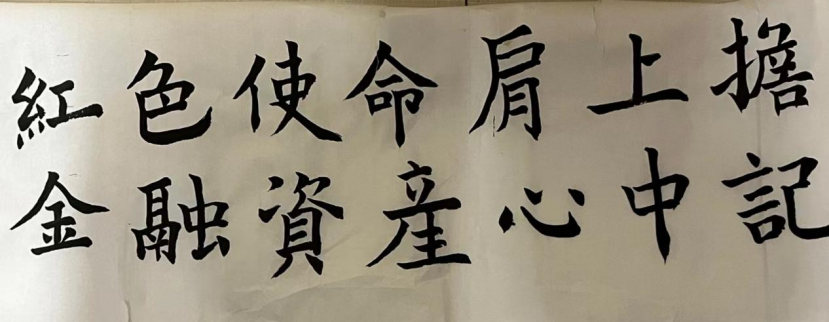 紅色使命肩上擔
金融資産心中記